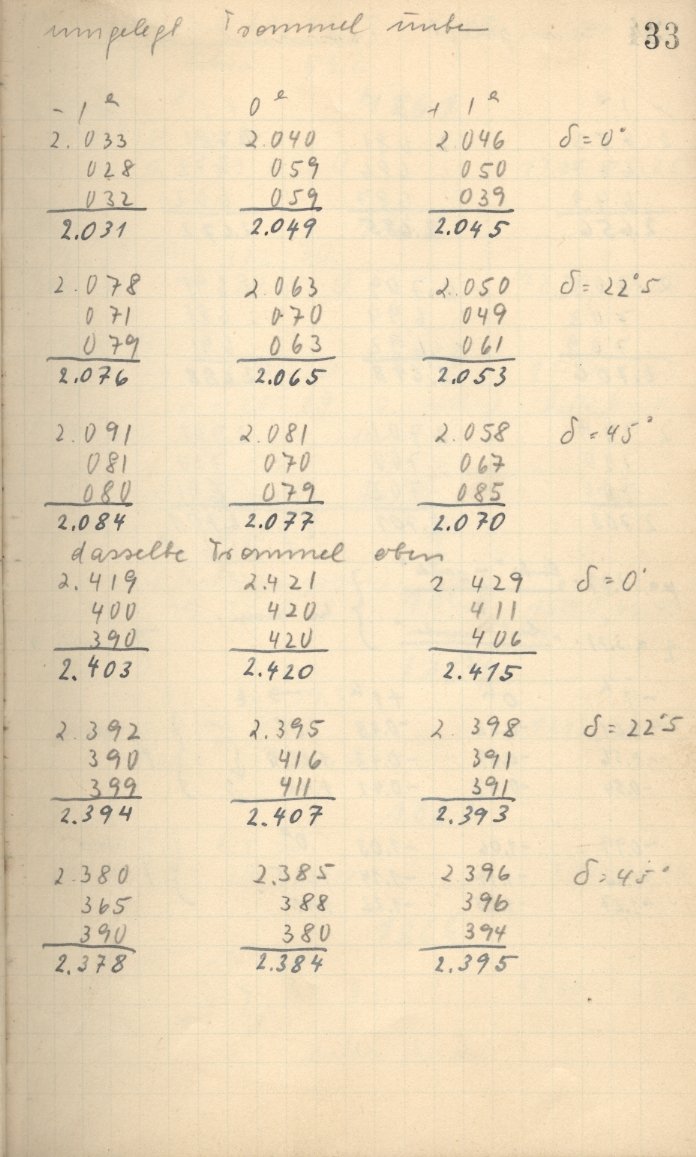 umgelegt Trommel unten 33
- 1ᵉ 0ᵉ + 1ᵉ
2.033 2.040 2.046 δ = 0°
028 059 050
032 059 039
2.031 2.049 2.045
2.078 2.063 2.050 δ = 22°5
071 070 049
079 063 061
2.076 2.065 2.053
2.091 2.081 2.058 δ = 45°
081 070 067
080 079 085
2.084 2.077 2.070
dasselbe Trommel oben
2.419 2.421 2.429 δ = 0°
400 420 411
390 420 406
2.403 2.420 2.415
2.392 2.395 2.398 δ = 22°5
390 416 391
399 411 391
2.394 2.407 2.393
2.380 2.385 2.396 δ = 45°
365 388 396
390 380 394
2.378 2.384 2.395